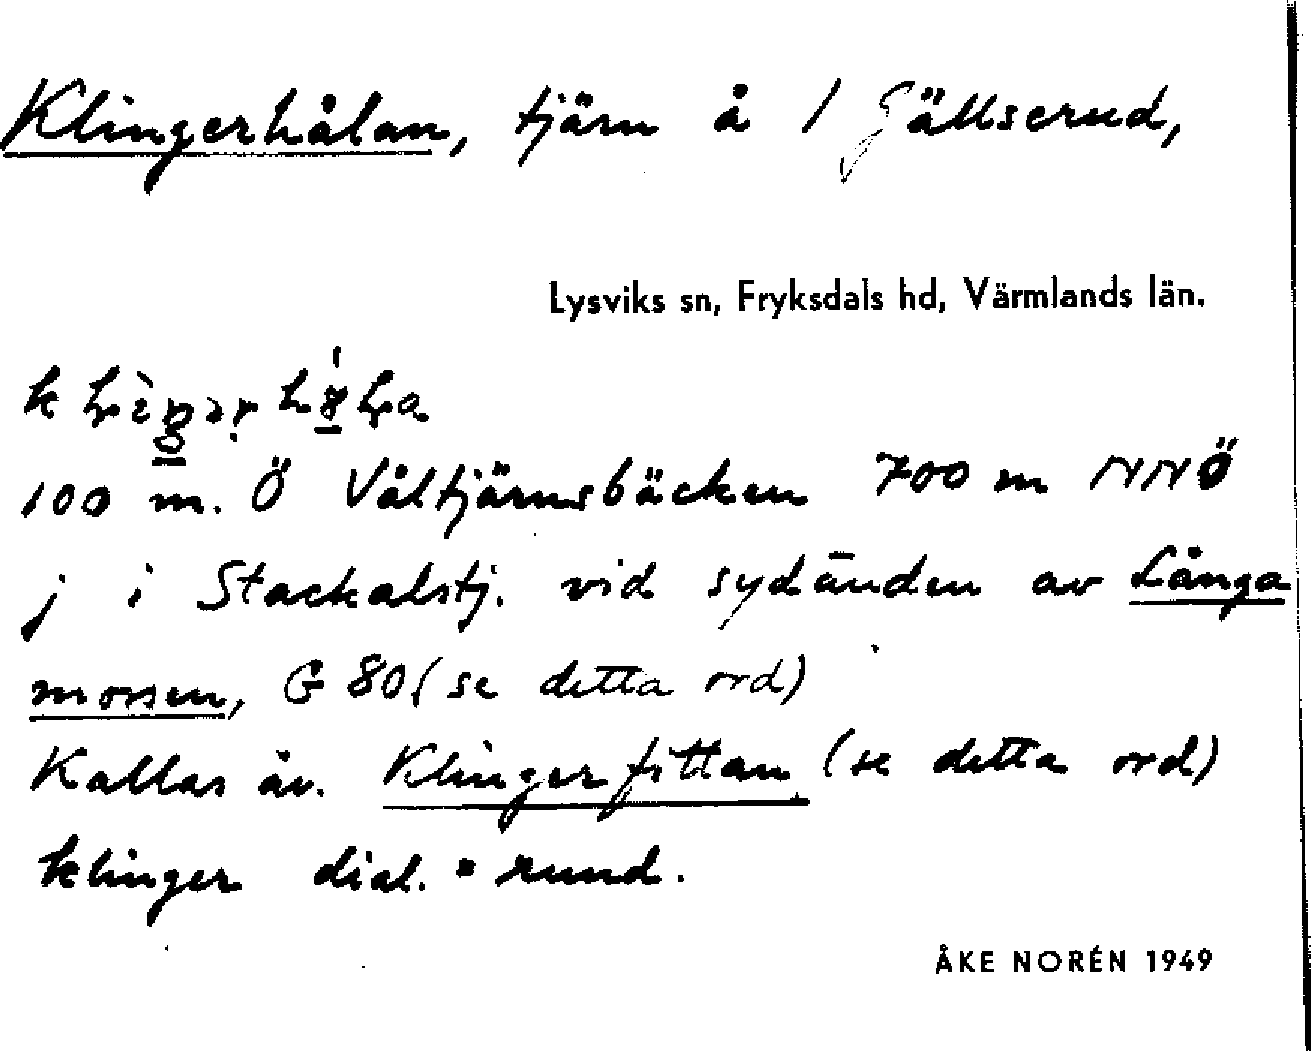 Klingerhålan, tjärn å 1 Gällserud,
Lysviks sn, Fryksdals hd, Värmlands län.
100 m. Ö Våltjärnsbäcken 700 m NNÖ
j i Stackalstj. vid sydänden av Långa
mossen, G 80 (se detta ord)
Kallas äv. Klingerfittan (se detta ord)
klinger dial. = rund.
ÅKE NORÉN 1949